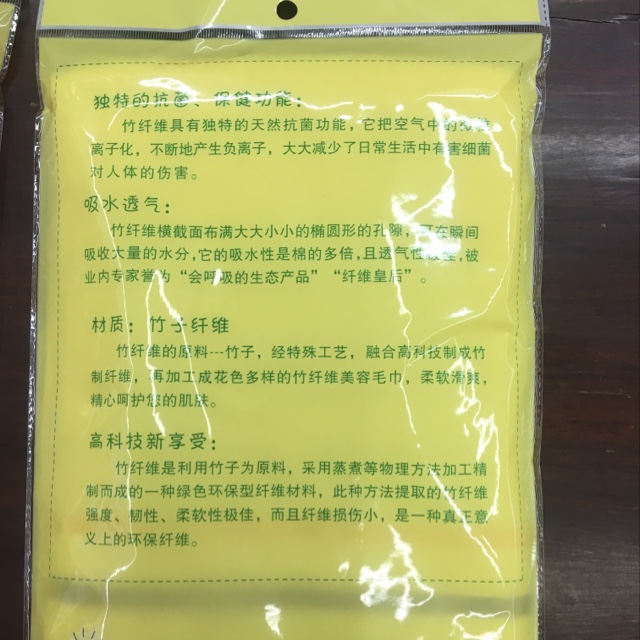 独特的抗菌、保健功能：
竹纤维具有独特的天然抗菌功能，它把空气中的
离子化，不断地产生负离子，大大减少了日常生活中有害细菌
对人体的伤害。
吸水透气：
竹纤维横截面布满大大小小的椭圆形的孔隙，可在瞬间
吸收大量的水分，它的吸水性是棉的多倍，且透气性极佳，被
业内专家誉为“会呼吸的生态产品”“纤维皇后”。
材质：竹子纤维
竹纤维的原料---竹子，经特殊工艺，融合高科技制成竹
制纤维，再加工成花色多样的竹纤维美容毛巾，柔软滑爽，
精心呵护您的肌肤。
高科技新享受：
竹纤维是利用竹子为原料，采用蒸煮等物理方法加工精
制而成的一种绿色环保型纤维材料，此种方法提取的竹纤维
强度、韧性、柔软性极佳，而且纤维损伤小，是一种真正意
义上的环保纤维。